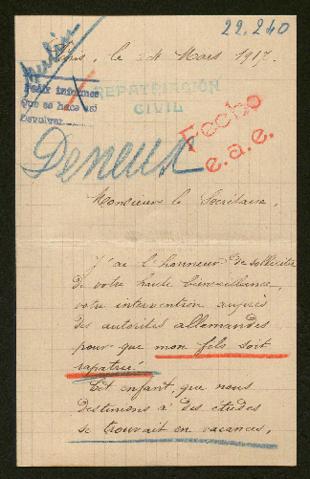 22.240
Paris, le 24 Mars 1917.
Pedir informes
Que se hace así
Devolver
REPATRIACIÓN
CIVIL
Fecho
e.a.e.
Deneux
Monsieur le Secrétaire,
J'ai l'honneur de solliciter
de votre haute bienveillance,
votre intervention auprès
des autorités allemandes
pour que mon fils soit
rapatrié.
Cet enfant, que nous
destinions à des études
se trouvait en vacances,